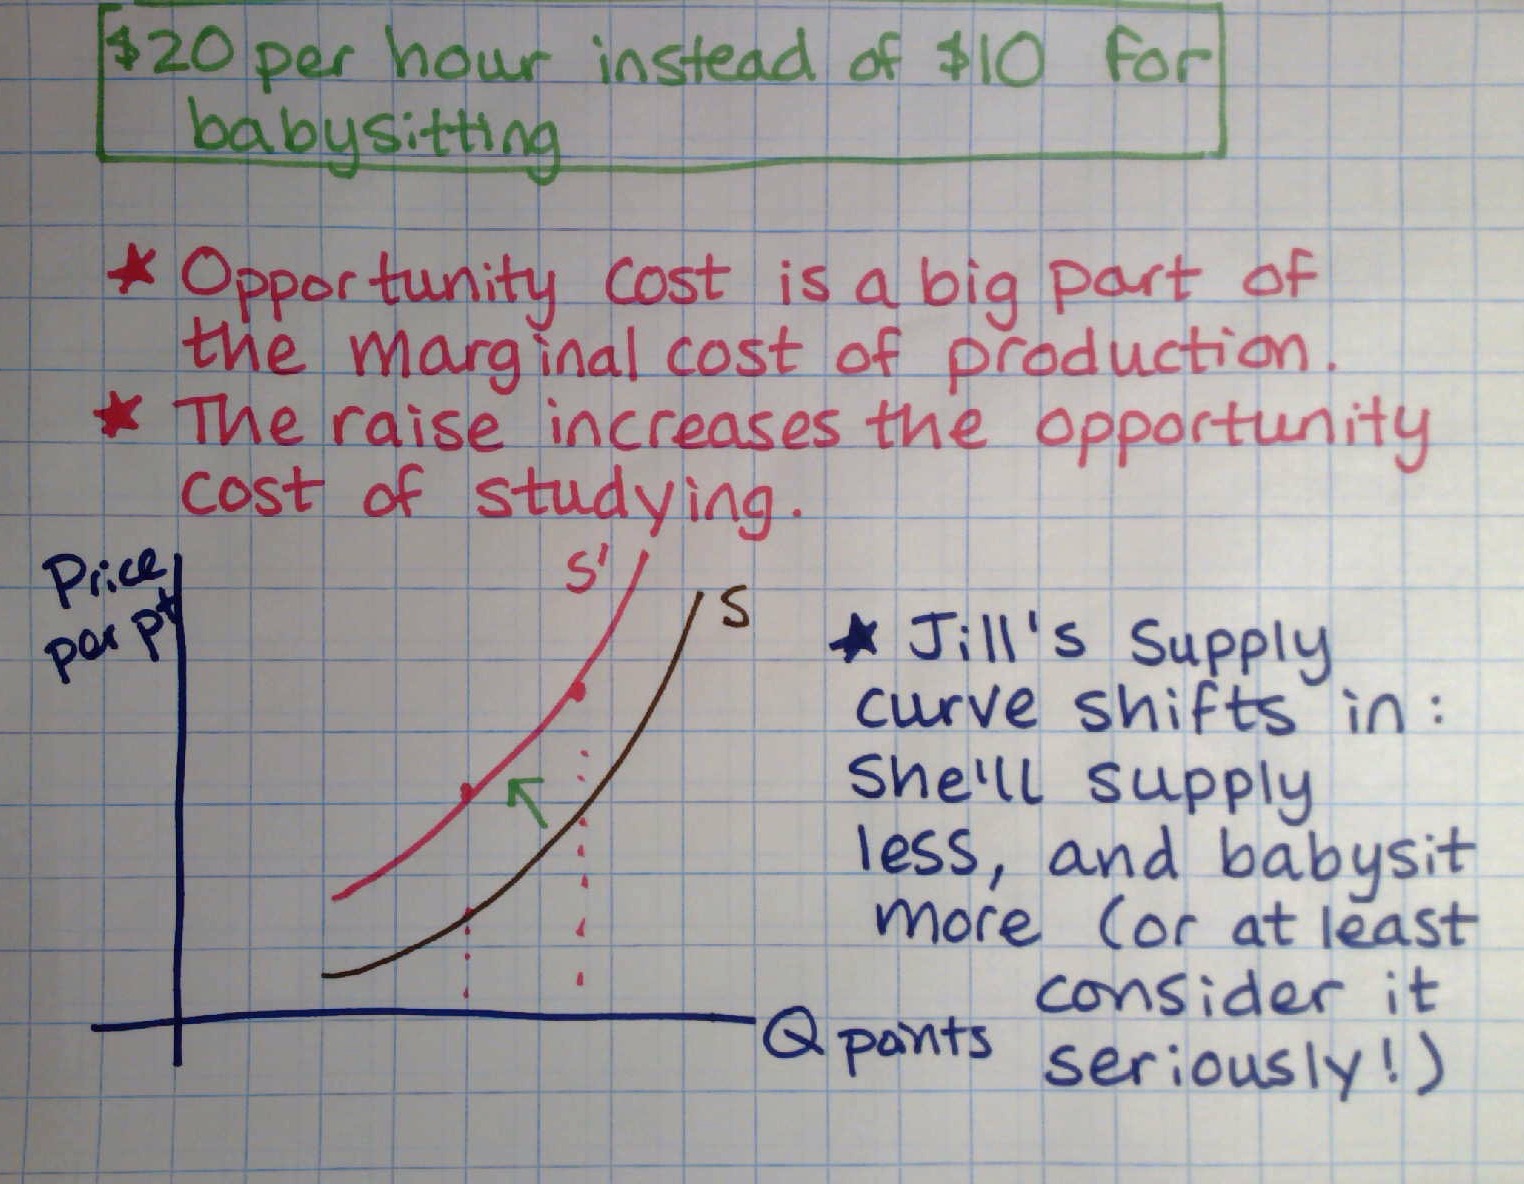 $20 per hour instead of $10 for
babysitting
★ Opportunity cost is a big part of
the marginal cost of production.
★ The raise increases the opportunity
cost of studying.
Price
per pt
S'
S
★ Jill's Supply
curve shifts in:
She'll supply
less, and babysit
more (or at least
consider it
seriously!)
Q points